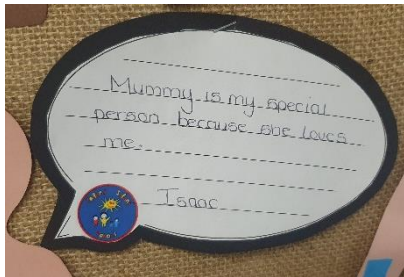 Mummy is my special
person because she loves
me.
Isaac